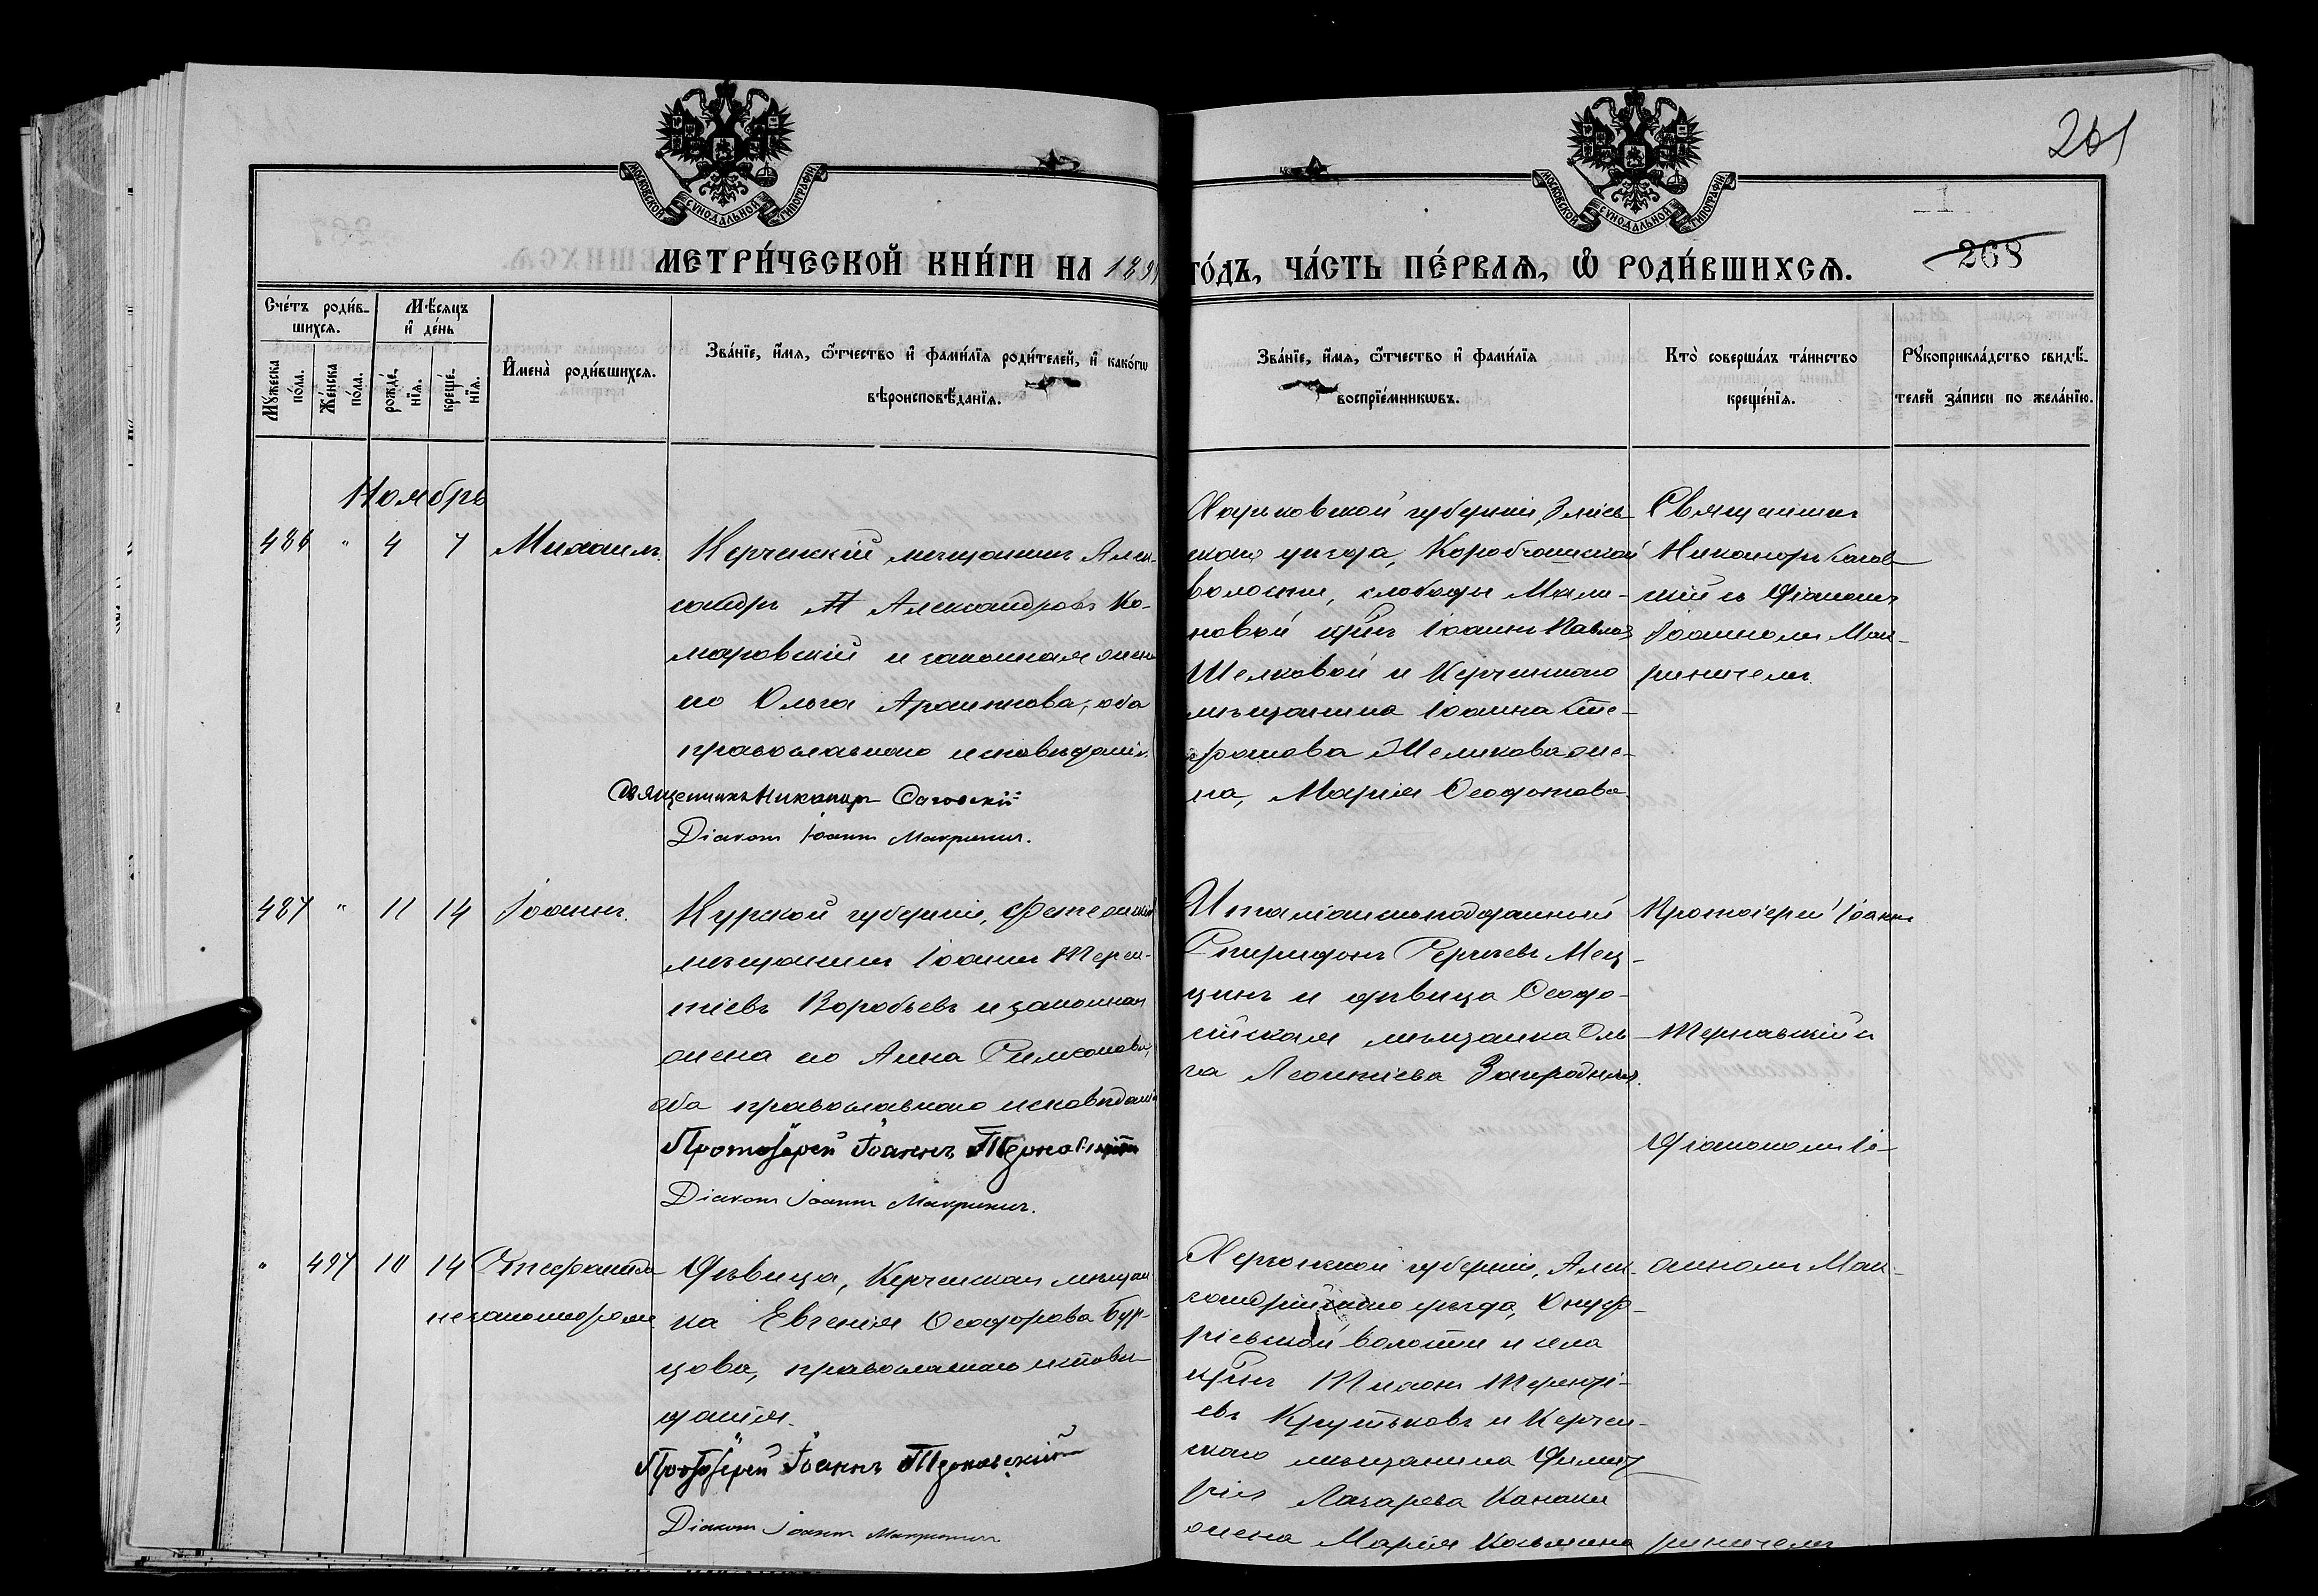 261
268
МОСКОВСКОЙ СѴНОДАЛЬНОЙ ТИПОГРАФІИ
МОСКОВСКОЙ СѴНОДАЛЬНОЙ ТИПОГРАФІИ
МЕТРИ́ЧЕСКОЙ КНИ́ГИ НА 189
ГО́ДЪ, ЧА́СТЬ ПЕ́РВАѦ, Ѽ РОДИ́ВШИХСѦ.
Сче́тъ роди́в-
шихсѧ.
Мꙋ́жеска по́ла.
Же́нска по́ла.
Мѣ́сѧцъ
и҆ де́нь
рожде́нїѧ.
креще́нїѧ.
И҆мена̀ роди́вшихсѧ.
Зва́нїе, и҆́мѧ, ѻ҆́тчество и҆ фами́лїѧ роди́телей, и҆ како́гѡ
вѣроисповѣ́данїѧ.
Зва́нїе, и҆́мѧ, ѻ҆́тчество и҆ фами́лїѧ
воспрїе́мникѡвъ.
Кто̀ соверша́лъ та́инство
креще́нїѧ.
Рꙋкоприкла́дство свидѣ́-
телей за́писи по жела́нїю.
Ноябрь
486 " 4 7 Михаилъ.
Керченскій мѣщанинъ Алек-
сандръ Александровъ Ко-
маровскій и законная жена
его Ольга; оба
православнаго исповѣданія.
Священникъ Никаноръ
Діаконъ Іоаннъ Макриничъ.
Харьковской губерніи, Зміев-
скаго уѣзда,
волости, слободы Мали-
новой крѣн. Іоаннъ Павловъ
Шелковой и Керченскаго
мѣщанина Іоанна Сте-
фанова Шеликова же-
на, Марія Ѳеодотова.
Священникъ
Никаноръ
съ Діакономъ
Іоанномъ Мак-
риничемъ.
487 " 11 14 Іоаннъ.
Курской губерніи,
мѣщанинъ Іоаннъ Терен-
тіевъ Воробьевъ и законная
жена его Анна Симеонова,
оба православнаго исповѣданія
Протоіерей Іоаннъ Терновскій
Діаконъ Іоаннъ Макриничъ.
Итальянскоподданный
Спиридонъ Сергѣевъ Мец-
цинъ и дѣвица Ѳеодо-
сійская мѣщанка Оль-
га Леонтіева
Протоіерей Іоаннъ
Терновскій съ
Діакономъ Іо-
" 497 10 14 Стефанида
незаконнорож.
Дѣвица, Керченская мѣщан-
ка Евгенія Ѳеодорова Бур-
цова, православнаго исповѣ-
данія.
Протоіерей Іоаннъ Терновскій
Діаконъ Іоаннъ Макриничъ
Херсонской губерніи, Алек-
сандрійскаго уѣзда, Онуф-
ріевской волости и села
крѣн. Тихонъ Терентi-
евъ Крутьковъ и Керчен-
скаго мѣщанина Димит-
рія Лазарева Канаки
жена Марія Косьмина
анномъ Мак-
риничемъ